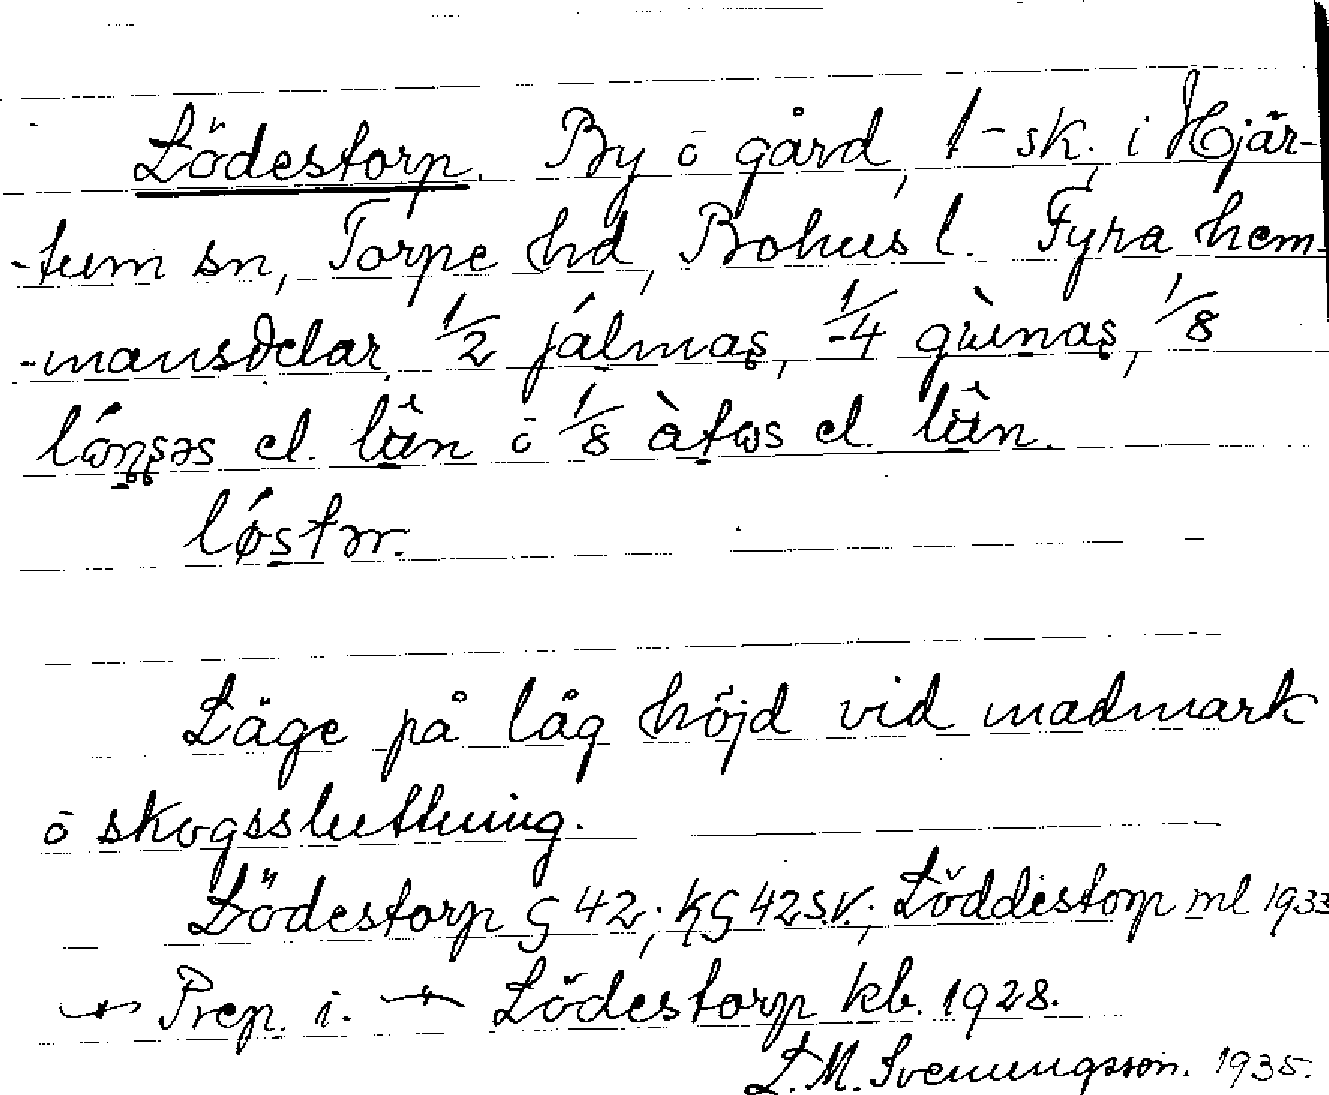 Lödestorp. By ō gård, 1-sk. i Hjär-
-tum sn, Torpe hd, Bohus l. Fyra hem-
-mansdelar 1/2 jálmas, 1/4 gùnas, 1/8
el. län ō 1/8 el. län.
løstər.
Läge på låg höjd vid madmark
ō skogssluttning.
Lödestorp G 42; KG 42 s.v.; Löddestorp ml 1933
Prep. i. Lödestorp kb. 1928.
L. M. Svenungsson. 1935.